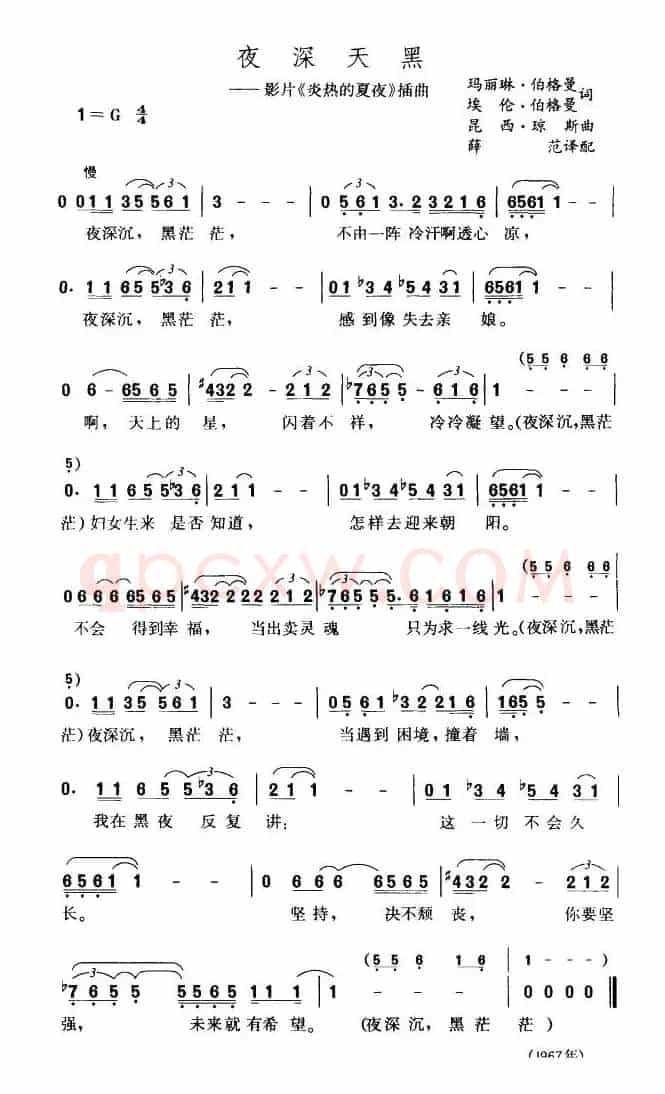 夜深天黑
——影片《炎热的夏夜》插曲
玛丽琳·伯格曼
埃伦·伯格曼 词
昆西·琼斯曲
薛范译配
1=G 4/4
慢
0 0 1 1 3 5 5 5 6 1 | 3 - - | 0 5 6 1 3. 2 3 2 1 6 | 6561 1 - -
夜深沉，黑茫茫， 不由一阵 冷汗啊透心 凉，
0. 1 1 6 5 5 b3 6 | 2 1 1 - - | 0 1 b3 4 b5 4 3 1 | 6561 1 - -
夜深沉，黑茫茫， 感到像失去亲 娘。
(5 5 6 6 6
0 6 - 6 5 6 5 | #4 3 2 2 - 2 1 2 | b7 6 5 5 - 6 1 6 | 1 - - -
啊，天上的 星， 闪着不 祥， 冷冷凝 望。(夜深沉，黑茫
5)
0. 1 1 6 5 5 b3 6 | 2 1 1 - - | 0 1 b3 4 b5 4 3 1 | 6561 1 - -
茫)妇女生来 是否 知道， 怎样去迎来朝 阳。
qpcxw.COM
(5 5 6 6 6
0 6 6 6 6 5 6 5 | #4 3 2 2 2 2 2 1 2 | b7 6 5 5 5. 6 6 1 6 | 1 - - -
不会 得到幸 福，当出卖灵 魂 只为求一线 光。(夜深沉，黑茫
5)
0. 1 1 3 5 5 5 6 1 | 3 - - | 0 5 6 1 b3 2 2 1 6 | 1 6 5 5 - -
茫)夜深沉，黑茫茫， 当遇到 困境，撞着 墙，
0. 1 1 6 5 5 b3 6 | 2 1 1 - - | 0 1 b3 4 b5 4 3 1
我在黑夜 反复 讲； 这一切不会久
6561 1 - - | 0 6 6 6 6 5 6 5 | #4 3 2 2 - 2 1 2
长。 坚持， 决不颓 丧， 你要坚
(5 5 6 1 6 | 1 - - )
b7 6 5 5 5 5 5 6 5 1 1 1 | 1 - - - | 0 0 0 0 ‖
强， 未来就有希 望。 (夜深沉，黑茫 茫)
(1967年)